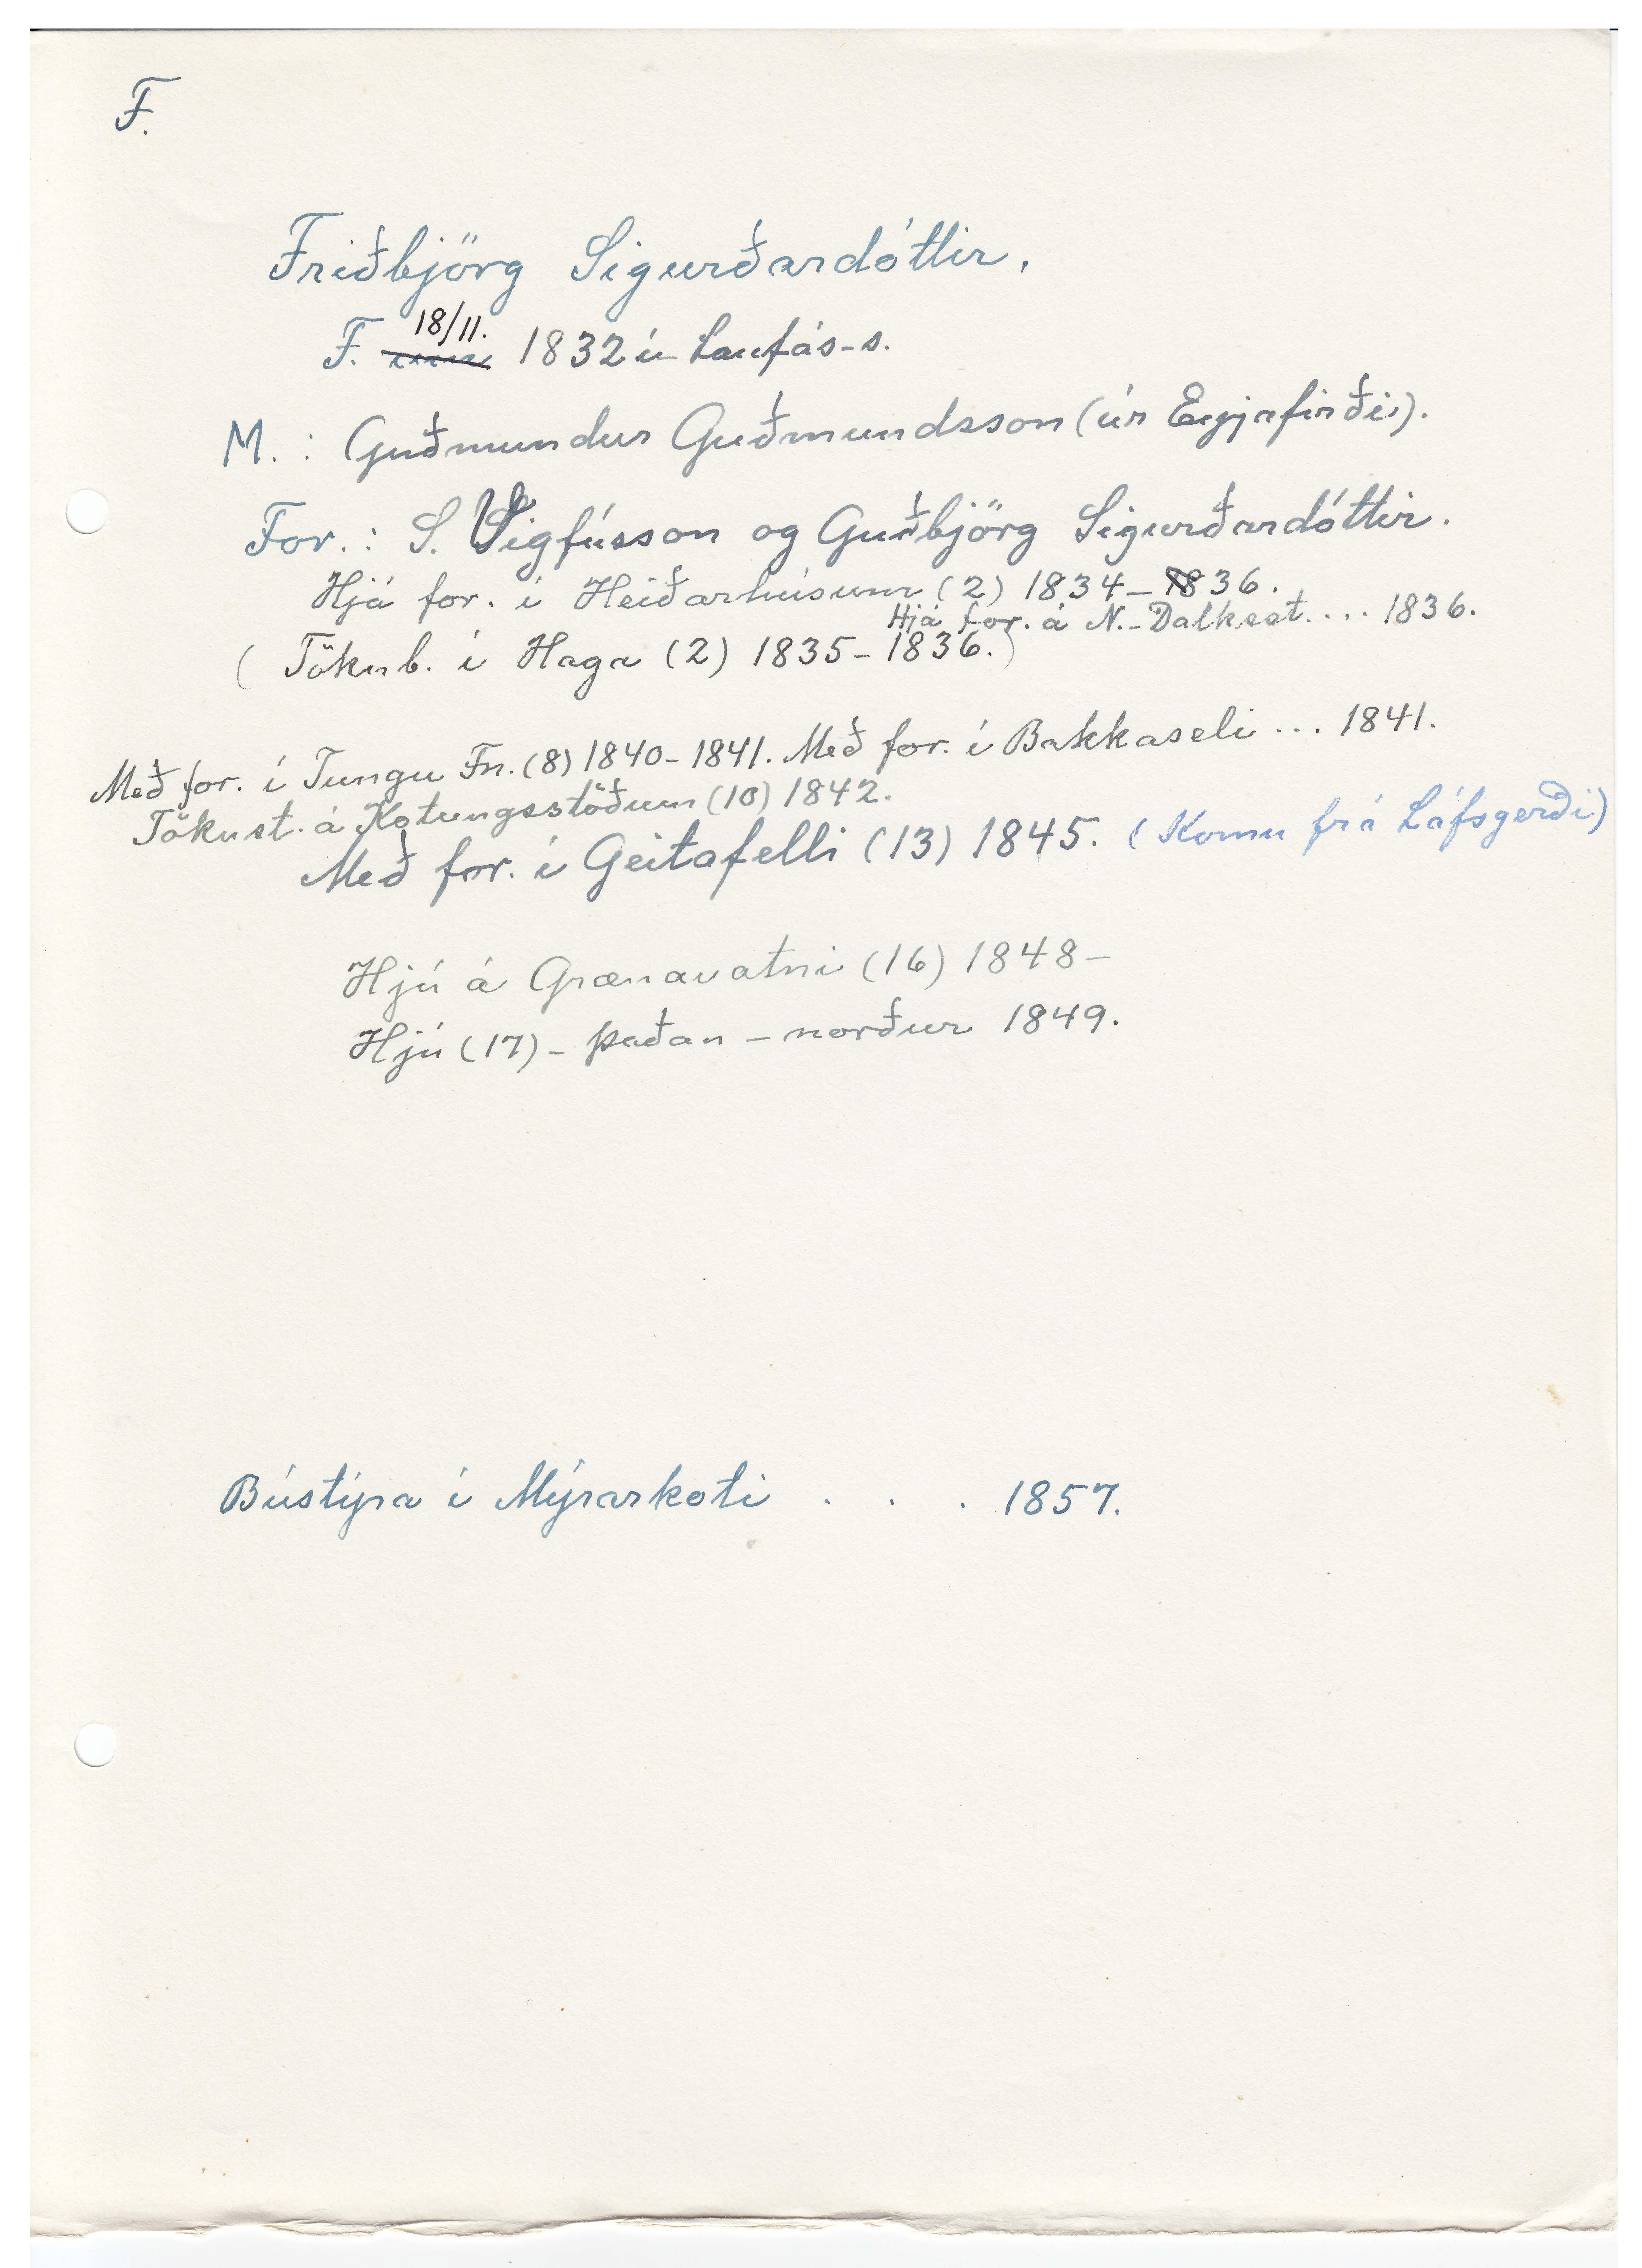 F.
Friðbjörg Sigurðardóttir.
F. 18/11. 1832 í Laufás-s.
M. : Guðmundur Guðmundsson (úr Eyjafirði).
For. : S. Sigfússon og Guðbjörg Sigurðardóttir.
Hjá for. í Heiðarhúsum (2) 1834-1836.
Hjá for. á N.-Dalksst. ... 1836.
( Tökub. í Haga (2) 1835-1836.)
Með for. í Tungu Fn. (8) 1840-1841. Með for. í Bakkaseli ... 1841.
Tökust. á Kotungsstöðum (10) 1842.
Með for. í Geitafelli (13) 1845. (Komu frá Láfsgerði)
Hjú á Grænavatni (16) 1848-
Hjú (17) - þaðan - norður 1849.
Bústýra í Mýrarkoti . . . 1857.